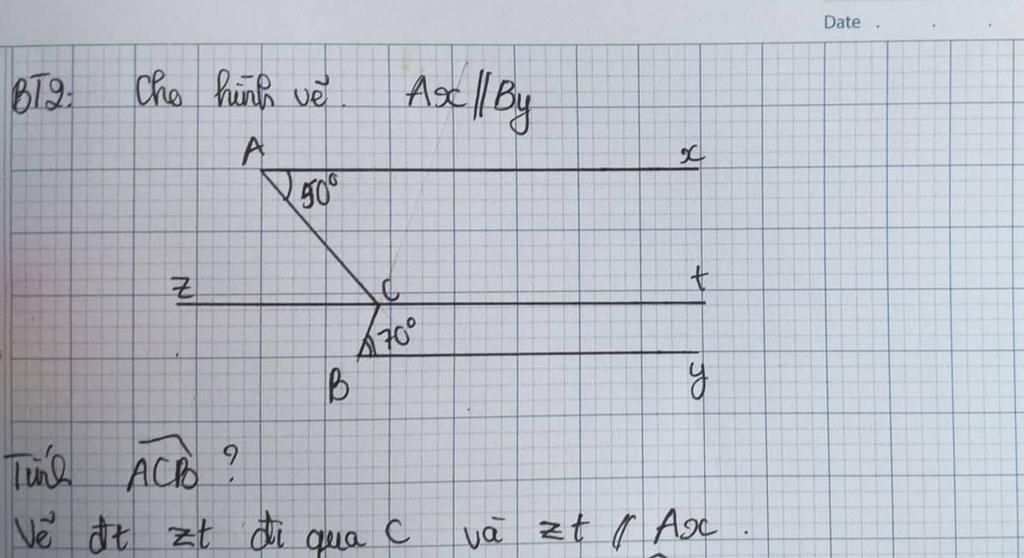 Date . . .
BT2: Cho hình vẽ. Ax // By
A x
50°
z C t
70°
B y
Tính ACB ?
Vẽ đt zt đi qua C và zt // Ax .